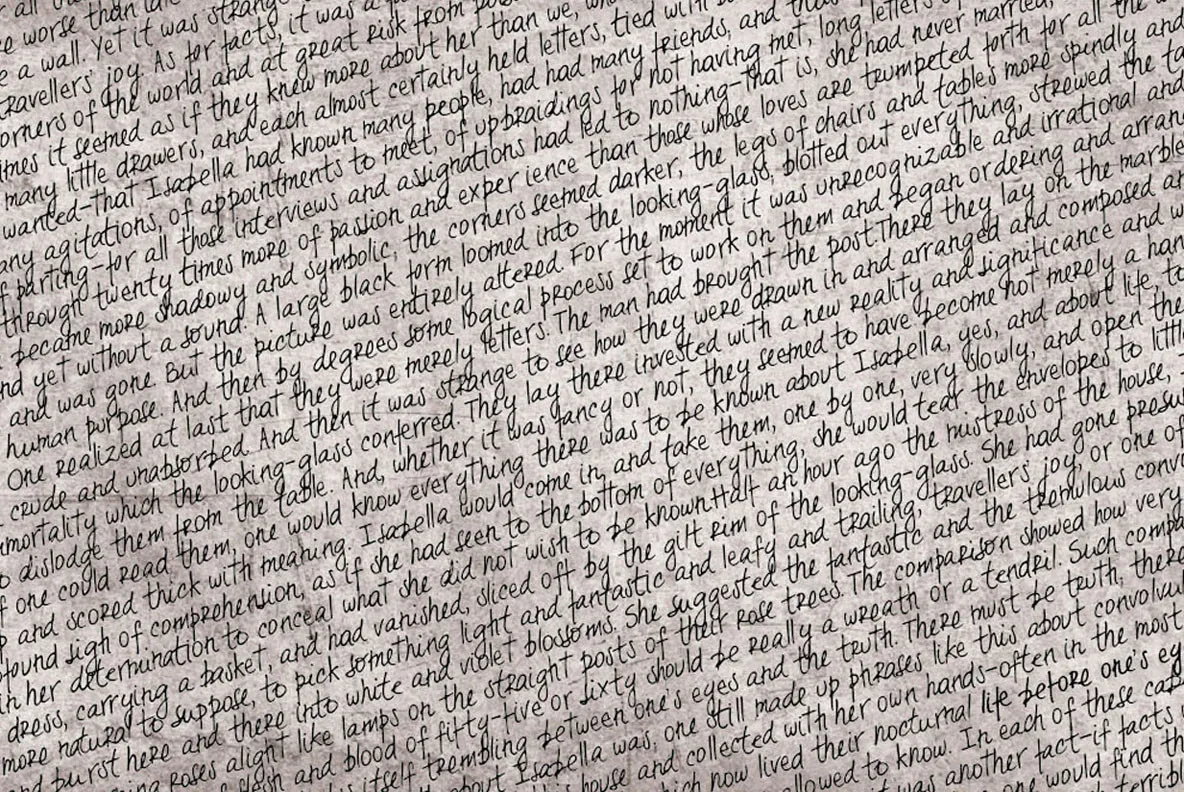 all
e worse than
e a wall. Yet it was strange
travellers' joy. As for facts, it was a f
orners of the world and at great risk from pois
imes it seemed as if they knew more about her than we, wh
many little drawers, and each almost certainly held letters, tied with
wanted-that Isabella had known many people, had had many friends, and thus
any agitations, of appointments to meet, of upbraidings for not having met, long letters of
f parting-for all those interviews and assignations had led to nothing-that is, she had never married,
through twenty times more of passion and experience than those whose loves are trumpeted forth for all the w
became more shadowy and symbolic, the corners seemed darker, the legs of chairs and tables more spindly and
nd yet without a sound. A large black form loomed into the looking-glass, blotted out everything, strewed the ta
and was gone. But the picture was entirely altered. For the moment it was unrecognizable and irrational and
human purpose. And then by degrees some logical process set to work on them and began ordering and arran
One realized at last that they were merely letters. The man had brought the post.There they lay on the marble
crude and unabsorbed. And then it was strange to see how they were drawn in and arranged and composed an
mmortality which the looking-glass conferred. They lay there invested with a new reality and significance and w
o dislodge them from the table. And, whether it was fancy or not, they seemed to have become not merely a han
f one could read them, one would know everything there was to be known about Isabella, yes, and about life, to
p and scored thick with meaning. Isabella would come in, and take them, one by one, very slowly, and open the
found sigh of comprehension, as if she had seen to the bottom of everything, she would tear the envelopes to little
in her determination to conceal what she did not wish to be known.Half an hour ago the mistress of the house,
dress, carrying a basket, and had vanished, sliced off by the gilt rim of the looking-glass. She had gone presu
more natural to suppose, to pick something light and fantastic and leafy and trailing, travellers' joy, or one of
nd burst here and there into white and violet blossoms. She suggested the fantastic and the tremulous conv
ning roses alight like lamps on the straight posts of their rose trees. The comparison showed how very
flesh and blood of fifty-five or sixty should be really a wreath or a tendril. Such compa
itself trembling between one's eyes and the truth. There must be truth, there
about Isabella was, one still made up phrases like this about convolvu
is house and collected with her own hands-often in the most
hich now lived their nocturnal life before one's ey
allowed to know. In each of these cab
was another fact-if facts
one would find th
terribl